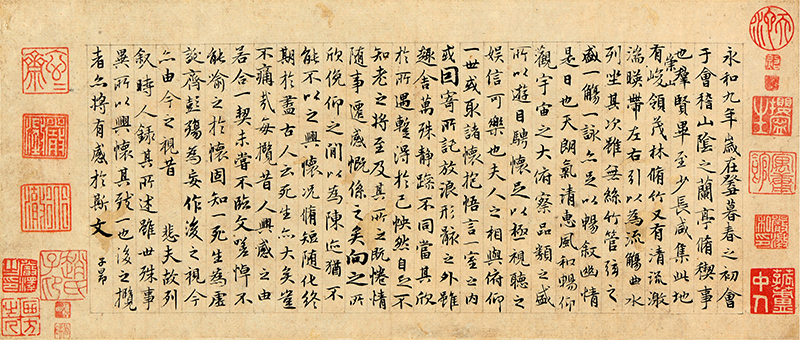 永和九年歲在癸暮春之初會
于會稽山陰之蘭亭脩稧事
也羣賢畢至少長咸集此地
有崇山峻領茂林脩竹又有清流激
湍暎帶左右引以為流觴曲水
列坐其次雖無絲竹管弦之
盛一觴一詠亦足以暢叙幽情
是日也天朗氣清惠風和暢仰
觀宇宙之大俯察品類之盛
所以遊目騁懷足以極視聽之
娛信可樂也夫人之相與俯仰
一世或取諸懷抱悟言一室之內
或因寄所託放浪形骸之外雖
趣舍萬殊靜躁不同當其欣
於所遇暫得於己怏然自足不
知老之將至及其所之既惓情
隨事遷感慨係之矣向之所
欣俛仰之間以為陳迹猶不
能不以之興懷況脩短隨化終
期於盡古人云死生亦大矣豈
不痛哉每攬昔人興感之由
若合一契未嘗不臨文嗟悼不
能喻之於懷固知一死生為虛
誕齊彭殤為妄作後之視今
亦由今之視昔 悲夫故列
叙時人錄其所述雖世殊事
異所以興懷其致一也後之攬
者亦將有感於斯文
子昂